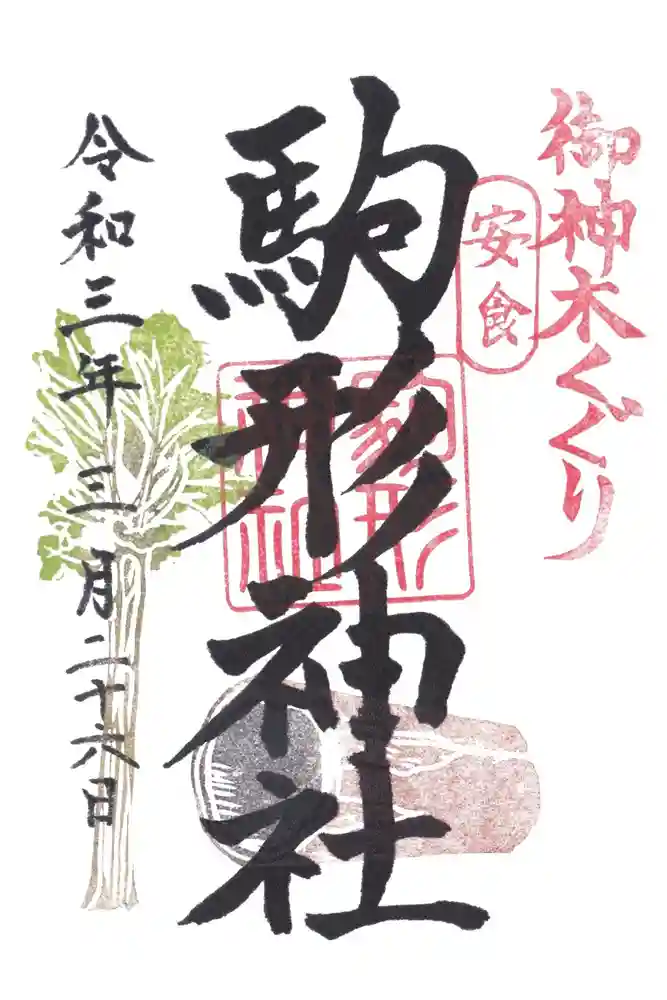 御神木くぐり
安食
駒形神社
駒形神社
令和三年三月二十六日